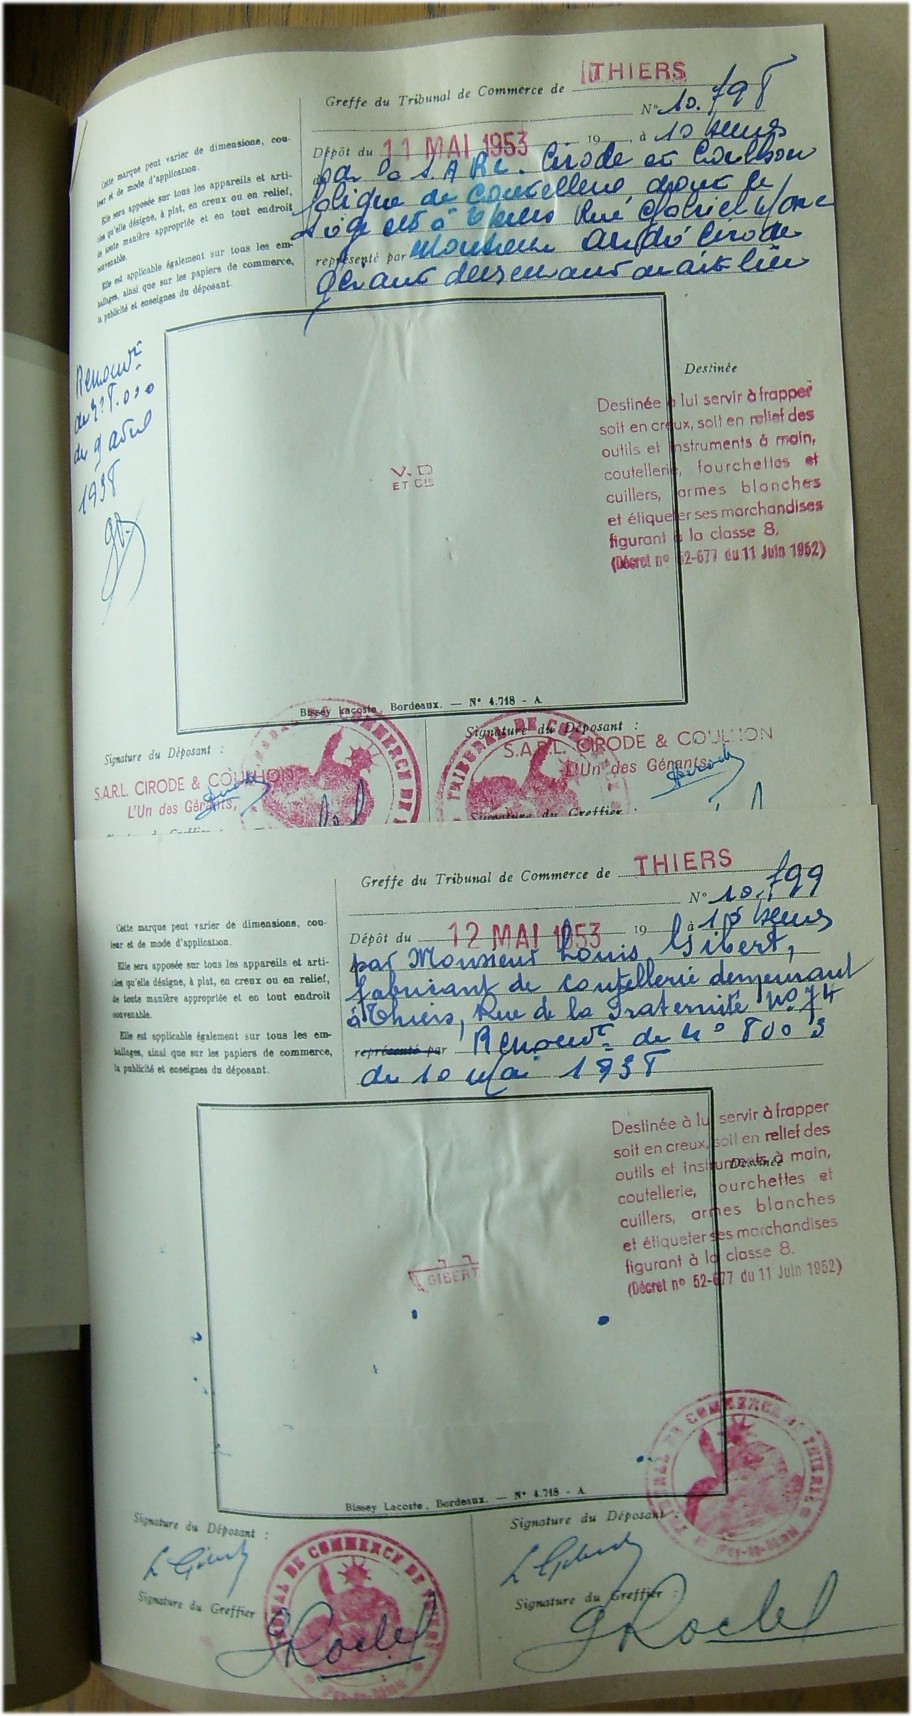 Greffe du Tribunal de Commerce de THIERS
N° 10.798
Dépôt du 11 MAI 1953 19 , à 10 heures
par la S.A.R.L. Cirode et Coulhon
fabrique de coutellerie dont le
siège est à Thiers Rue Gabriel Marc
représenté par Monsieur André Cirode
gérant demeurant audit lieu
Cette marque peut varier de dimensions, cou-
leur et de mode d'application.
Elle sera apposée sur tous les appareils et arti-
cles qu'elle désigne, à plat, en creux ou en relief,
de toute manière appropriée et en tout endroit
convenable.
Elle est applicable également sur tous les em-
ballages, ainsi que sur les papiers de commerce,
la publicité et enseignes du déposant.
Renouvt
du 9 avril
1938
V. D
ET Cie
Destinée
Destinée à lui servir à frapper
soit en creux, soit en relief des
outils et instruments à main,
coutellerie, fourchettes et
cuillers, armes blanches
et étiqueter ses marchandises
figurant à la classe 8.
(Décret n° 52-677 du 11 Juin 1952)
Bissey Lacoste, Bordeaux. — N° 4.718 - A.
Signature du Déposant :
S.A.R.L. CIRODE & COULHON
L'Un des Gérants,
Signature du Déposant :
S.A.R.L. CIRODE & COULHON
L'Un des Gérants,
Signature du Greffier :
TRIBUNAL DE COMMERCE DE
Greffe du Tribunal de Commerce de THIERS
N° 10.799
Dépôt du 12 MAI 1953 19 à 15 heures
par Monsieur Louis Gibert,
fabricant de coutellerie demeurant
à Thiers, Rue de la Fraternité n° 74
représenté par Renouvt du n° 8003
du 10 Mai 1938
Cette marque peut varier de dimensions, cou-
leur et de mode d'application.
Elle sera apposée sur tous les appareils et arti-
cles qu'elle désigne, à plat, en creux ou en relief,
de toute manière appropriée et en tout endroit
convenable.
Elle est applicable également sur tous les em-
ballages, ainsi que sur les papiers de commerce,
la publicité et enseignes du déposant.
GIBERT
Destinée
Destinée à lui servir à frapper
soit en creux, soit en relief des
outils et instruments à main,
coutellerie, fourchettes et
cuillers, armes blanches
et étiqueter ses marchandises
figurant à la classe 8.
(Décret n° 52-677 du 11 Juin 1952)
Bissey Lacoste, Bordeaux. — N° 4.718 - A.
TRIBUNAL DE COMMERCE DE THIERS
Signature du Déposant :
L Gibert
Signature du Greffier
Signature du Déposant :
L Gibert
Signature du Greffier :
TRIBUNAL DE COMMERCE DE THIERS